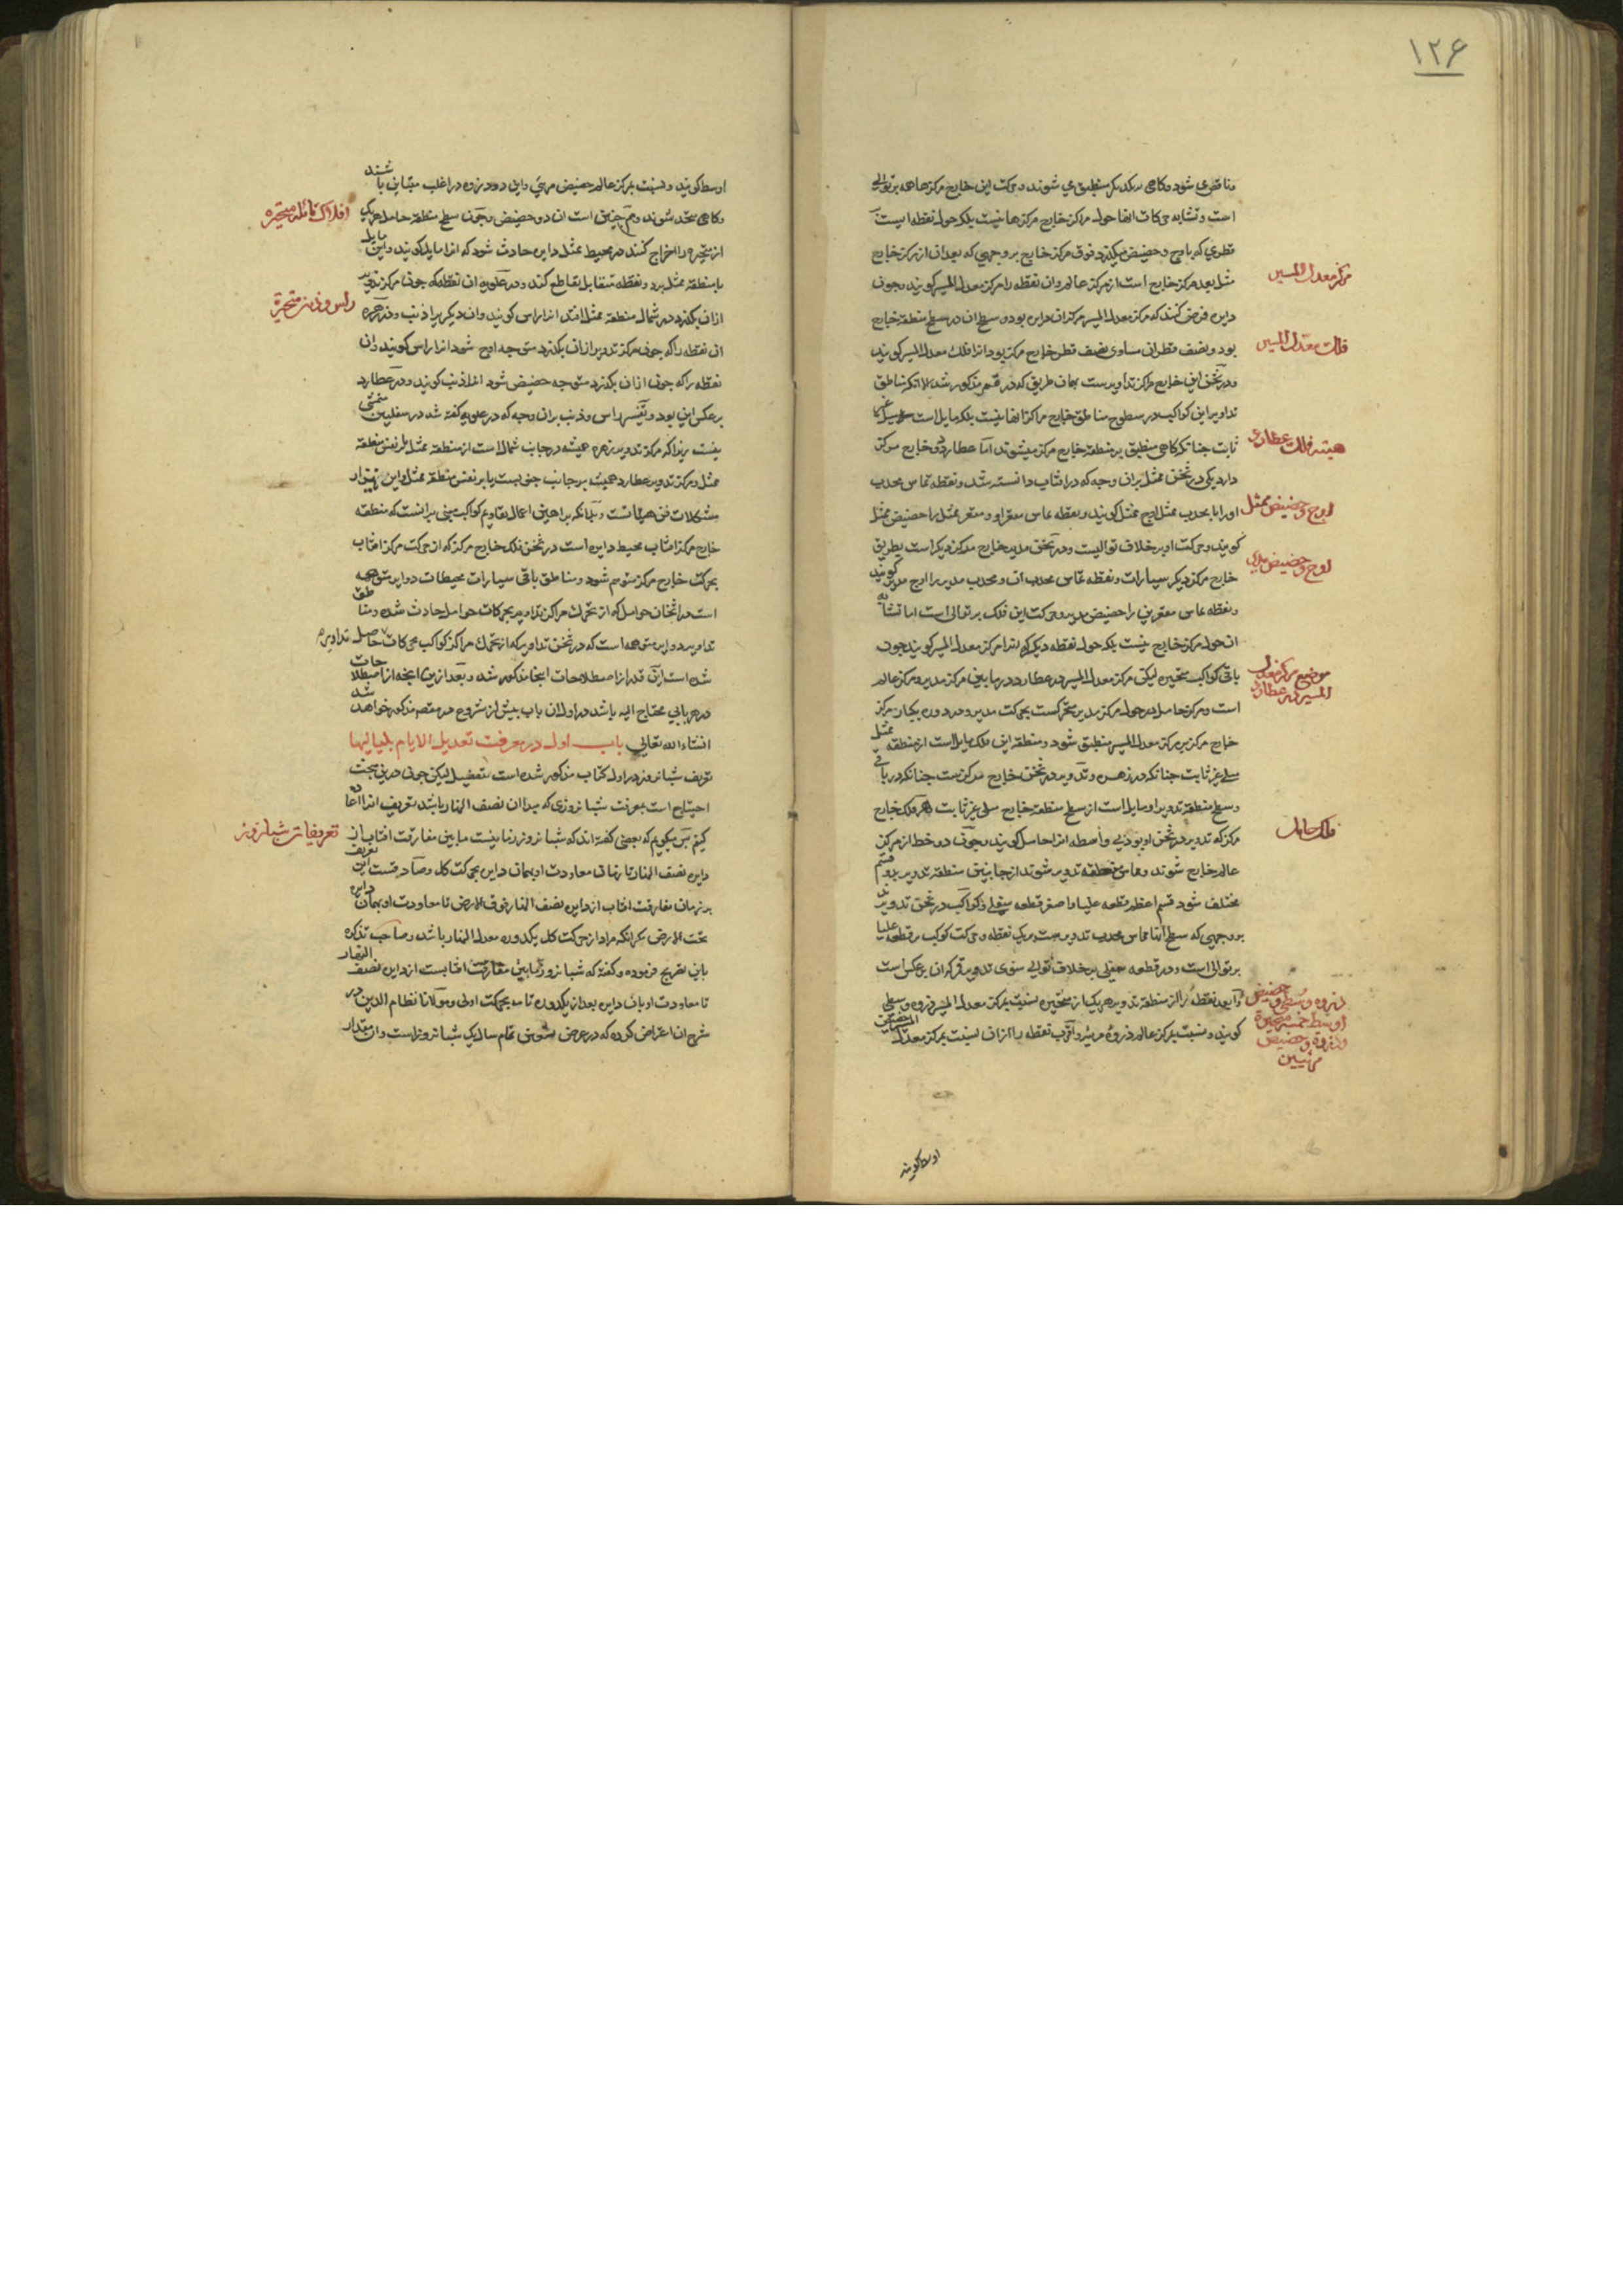 ۱۲۶
مناطق می شود و کاهی بر یکدیگر منطبق می شوند و حرکت این خارج مرکزها همه بر توالی
است و تشابه حرکات انها حول مراکز خارج مرکزها نیست بلکه حول نقطه ایست بر
قطری که باوج و حضیض میکذرد فوق مرکز خارج بر وجهی که بعد ان از مرکز خارج
مثل بعد مرکز خارج است از مرکز عالم و ان نقطه را مرکز معدل المسیر کویند و چون
مرکز معدل المسیر
دایره فرض کنند که مرکز معدل المسیر مرکز ان دایره بود و سطح ان در سطح منطقه خارج
بود و نصف قطر ان مساوی نصف قطر خارج مرکز بود انرا فلک معدل المسیر کویند
فلک معدل المسیر
و در ثخن این خارج مراکز تداویرست بهمان طریق که در قمر مذکور شد الا انکه مناطق
تداویر این کواکب در سطوح مناطق خارج مراکز انها نیست بلکه مایل است
ثابت چنانکه کاهی منطبق بر منطقه خارج مرکز میشوند اما عطارد دو خارج مرکز
هیئت فلک عطارد
دارد یکی در ثخن ممثل بران وجه که در افتاب دانسته شد و نقطه تماس محدب
او را با محدب ممثل اوج ممثل کویند و نقطه تماس مقعر او و مقعر ممثل را حضیض ممثل
اوج و حضیض ممثل
کویند و حرکت او بر خلاف توالیست و در ثخن مدیر خارج مرکز دیکر است بطریق
خارج مرکز دیکر سیارات و نقطه تماس محدب ان و محدب مدیر را اوج مدیر کویند
اوج و حضیض مدیر
و نقطه تماس مقعرین را حضیض مدیر و حرکت این فلک بر توالی است اما تشابه
ان حول مرکز خارج نیست بلکه حول نقطه دیکر که انرا مرکز معدل المسیر کویند چون
باقی کواکب متحیره لیکن مرکز معدل المسیر در عطارد در مابین مرکز مدیر و مرکز عالم
موضع مرکز معدل
المسیر در عطارد
است و مرکز حامل او حول مرکز مدیر متحرکست بحرکت مدیر و در دوره یکبار مرکز
خارج مرکز بر مرکز معدل المسیر منطبق شود و منطقه این فلک مایل است از منطقه ممثل
میلی غیر ثابت چنانکه در زهره و تدویر در ثخن خارج مرکزست چنانکه در باقی
و سطح منطقه تدویر او مایل است از سطح منطقه خارج میلی غیر ثابت و هر فلک خارج
مرکز که تدویر در ثخن او بود بی واسطه انرا حامل کویند و چون دو خط از مرکز
فلک حامل
عالم خارج شوند و مماس منطقه تدویر شوند از جانبین منطقه تدویر بدو قسم
مختلف شود قسم اعظم قطعه علیا و اصغر قطعه سفلی و کواکب در ثخن تدویرند
بر وجهی که سطح انها مماس محدب تدویرست بر یک نقطه و حرکت کوکب در قطعه علیا
بر توالی است و در قطعه سفلی بر خلاف توالی سوی تدویر قمر که ان بر عکس است
و ابعد نقطه را از منطقه تدویر هر یک از متحیره نسبت بمرکز معدل المسیر ذروه وسطی
ذروه وسطی و حضیض
اوسط خمسه متحیره
کویند و نسبت بمرکز عالم ذروه مرئیه و اقرب نقطه را ازان نسبت بمرکز معدل المسیر حضیض
و ذروه و حضیض
مرئیین
اوسط کویند
اوسط کویند و نسبت بمرکز عالم حضیض مرئی و این دو ذروه در اغلب متباین باشند
و کاهی متحد شوند و هم چنین است ان دو حضیض و چون سطح منطقه حامل هر یک
افلاک مائله متحیره
از متحیره را اخراج کنند در محیط ممثل دایره حادث شود که انرا مایل کویند و این مایل
با منطقه ممثل بر دو نقطه متقابل تقاطع کند و در علویه ان نقطه که چون مرکز تدویر
راس و ذنب متحیره
ازان بکذرد در شمال منطقه ممثل افتد انرا راس کویند و ان دیکر را ذنب و در زهره
ان نقطه را که چون مرکز تدویر ازان بکذرد متوجه اوج شود انرا راس کویند و ان
نقطه را که چون ازان بکذرد متوجه حضیض شود انرا ذنب کویند و در عطارد
بر عکس این بود و تفسیر راس و ذنب بران وجه که در علویه کفته شد در سفلیین متمشی
نیست زیرا که مرکز تدویر زهره همیشه در جانب شمال است از منطقه ممثل یا بر نفس منطقه
ممثل و مرکز تدویر عطارد همیشه بر جانب جنوبست یا بر نفس منطقه ممثل و این نیز از
مشکلات فن هیئاتست و بدانکه براهین اعمال تقاویم کواکب مبنی برانست که منطقه
خارج مرکز افتاب محیط دایره است در ثخن فلک خارج مرکز که از حرکت مرکز افتاب
بحرکت خارج مرکز متوهم شود و مناطق باقی سیارات محیطات دوایر متوهمه
است در اثخان حوامل که از تحرک مراکز تداویر بحرکات حوامل حادث شده و مناطق
تداویر دوایر متوهمه است که در ثخن تداویر که از تحرک مراکز کواکب بحرکات تداویر حاصل
شده است این قدر از اصطلاحات اینجا مذکور شد و بعد ازین انچه از اصطلاحات
در هر بابی محتاج الیه باشد در اول ان باب پیش از شروع در مقصد مذکور خواهد شد
انشاء الله تعالی باب اول در معرفت تعدیل الایام بلیالیها
تعریف شبانروز در اول کتاب مذکور شده است بتفصیل لیکن چون درین مبحث
احتیاج است بمعرفت شبانروزی که مبدا ان نصف النهار باشد تعریف انرا اعاده
کنیم پس میکوییم که بعضی کفته اند که شبانروز زمانیست مابین مفارقت افتاب از
تعریفات شبانروز
دایره نصف النهار تا زمان معاودت او بهمان دایره بحرکت کل و صادقست این تعریف
بر زمان مفارقت افتاب از دایره نصف النهار فوق الارض تا معاودت او بهمان دایره
تحت الارض مکر انکه مراد از حرکت کل یکدوره معدل النهار باشد و صاحب تذکره
باین تصریح فرموده و کفته که شبانروز زمان مابین مفارقت افتابست از دایره نصف النهار
تا معاودت او بان دایره بعد از یکدوره تامه بحرکت اولی و مولانا نظام الدین در
شرح ان اعتراض کرده که در عرض تسعین تمام سال یک شبانروز است و ان مقدار